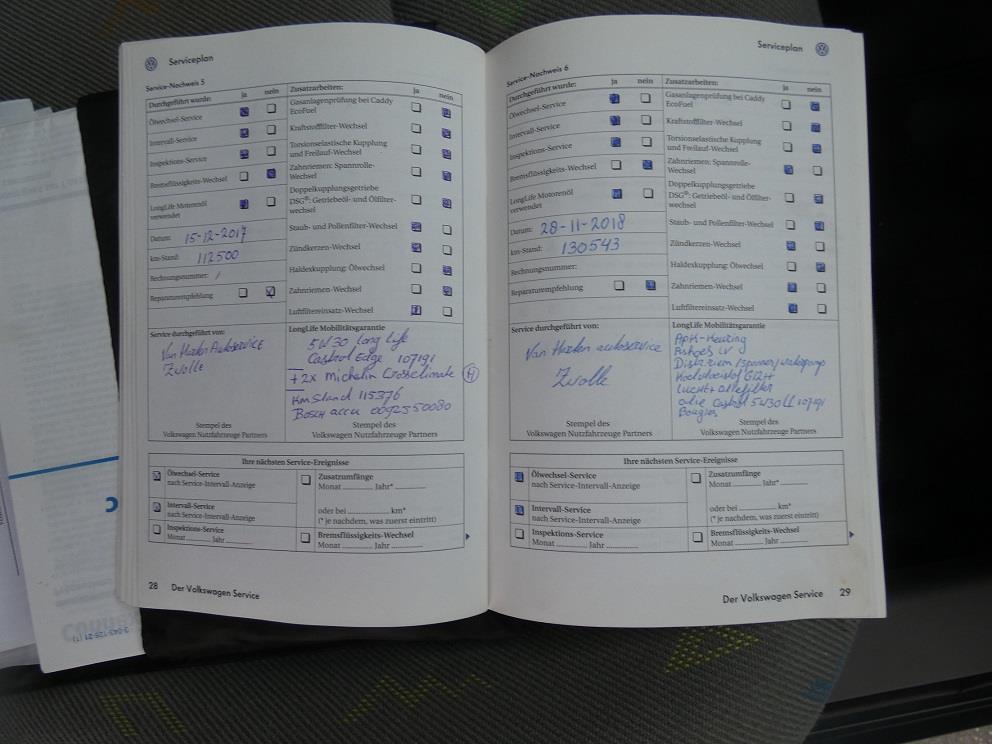 Serviceplan
Service-Nachweis 5
Durchgeführt wurde: ja nein
Ölwechsel-Service
Intervall-Service
Inspektions-Service
Bremsflüssigkeits-Wechsel
LongLife Motorenöl
verwendet
Datum: 15-12-2017
km-Stand: 112500
Rechnungsnummer: /
Reparaturempfehlung
Zusatzarbeiten: ja nein
Gasanlagenprüfung bei Caddy
EcoFuel
Kraftstofffilter-Wechsel
Torsionselastische Kupplung
und Freilauf-Wechsel
Zahnriemen: Spannrolle-
Wechsel
Doppelkupplungsgetriebe
DSG®: Getriebeöl- und Ölfilter-
wechsel
Staub- und Pollenfilter-Wechsel
Zündkerzen-Wechsel
Haldexkupplung: Ölwechsel
Zahnriemen-Wechsel
Luftfiltereinsatz-Wechsel
Service durchgeführt von:
Autoservice
Zwolle
Stempel des
Volkswagen Nutzfahrzeuge Partners
LongLife Mobilitätsgarantie
5W30 long life
Castrol Edge 107191
+2x Michelin Crossclimate (4)
Km Stand 115376
Bosch accu 0092S50080
Stempel des
Volkswagen Nutzfahrzeuge Partners
Ihre nächsten Service-Ereignisse
Ölwechsel-Service
nach Service-Intervall-Anzeige
Intervall-Service
nach Service-Intervall-Anzeige
Inspektions-Service
Monat Jahr
Zusatzumfänge
Monat Jahr*
oder bei km*
(* je nachdem, was zuerst eintritt)
Bremsflüssigkeits-Wechsel
Monat Jahr
28 Der Volkswagen Service
Serviceplan
Service-Nachweis 6
Durchgeführt wurde: ja nein
Ölwechsel-Service
Intervall-Service
Inspektions-Service
Bremsflüssigkeits-Wechsel
LongLife Motorenöl
verwendet
Datum: 28-11-2018
km-Stand: 130543
Rechnungsnummer:
Reparaturempfehlung
Zusatzarbeiten: ja nein
Gasanlagenprüfung bei Caddy
EcoFuel
Kraftstofffilter-Wechsel
Torsionselastische Kupplung
und Freilauf-Wechsel
Zahnriemen: Spannrolle-
Wechsel
Doppelkupplungsgetriebe
DSG®: Getriebeöl- und Ölfilter-
wechsel
Staub- und Pollenfilter-Wechsel
Zündkerzen-Wechsel
Haldexkupplung: Ölwechsel
Zahnriemen-Wechsel
Luftfiltereinsatz-Wechsel
Service durchgeführt von:
autoservice
Zwolle
Stempel des
Volkswagen Nutzfahrzeuge Partners
LongLife Mobilitätsgarantie
APK-Keuring
Koelvloeistof G12+
Lucht+oliefilter
olie Castrol 5W30 LL 107191
Bougies
Stempel des
Volkswagen Nutzfahrzeuge Partners
Ihre nächsten Service-Ereignisse
Ölwechsel-Service
nach Service-Intervall-Anzeige
Intervall-Service
nach Service-Intervall-Anzeige
Inspektions-Service
Monat Jahr
Zusatzumfänge
Monat Jahr*
oder bei km*
(* je nachdem, was zuerst eintritt)
Bremsflüssigkeits-Wechsel
Monat Jahr
Der Volkswagen Service 29